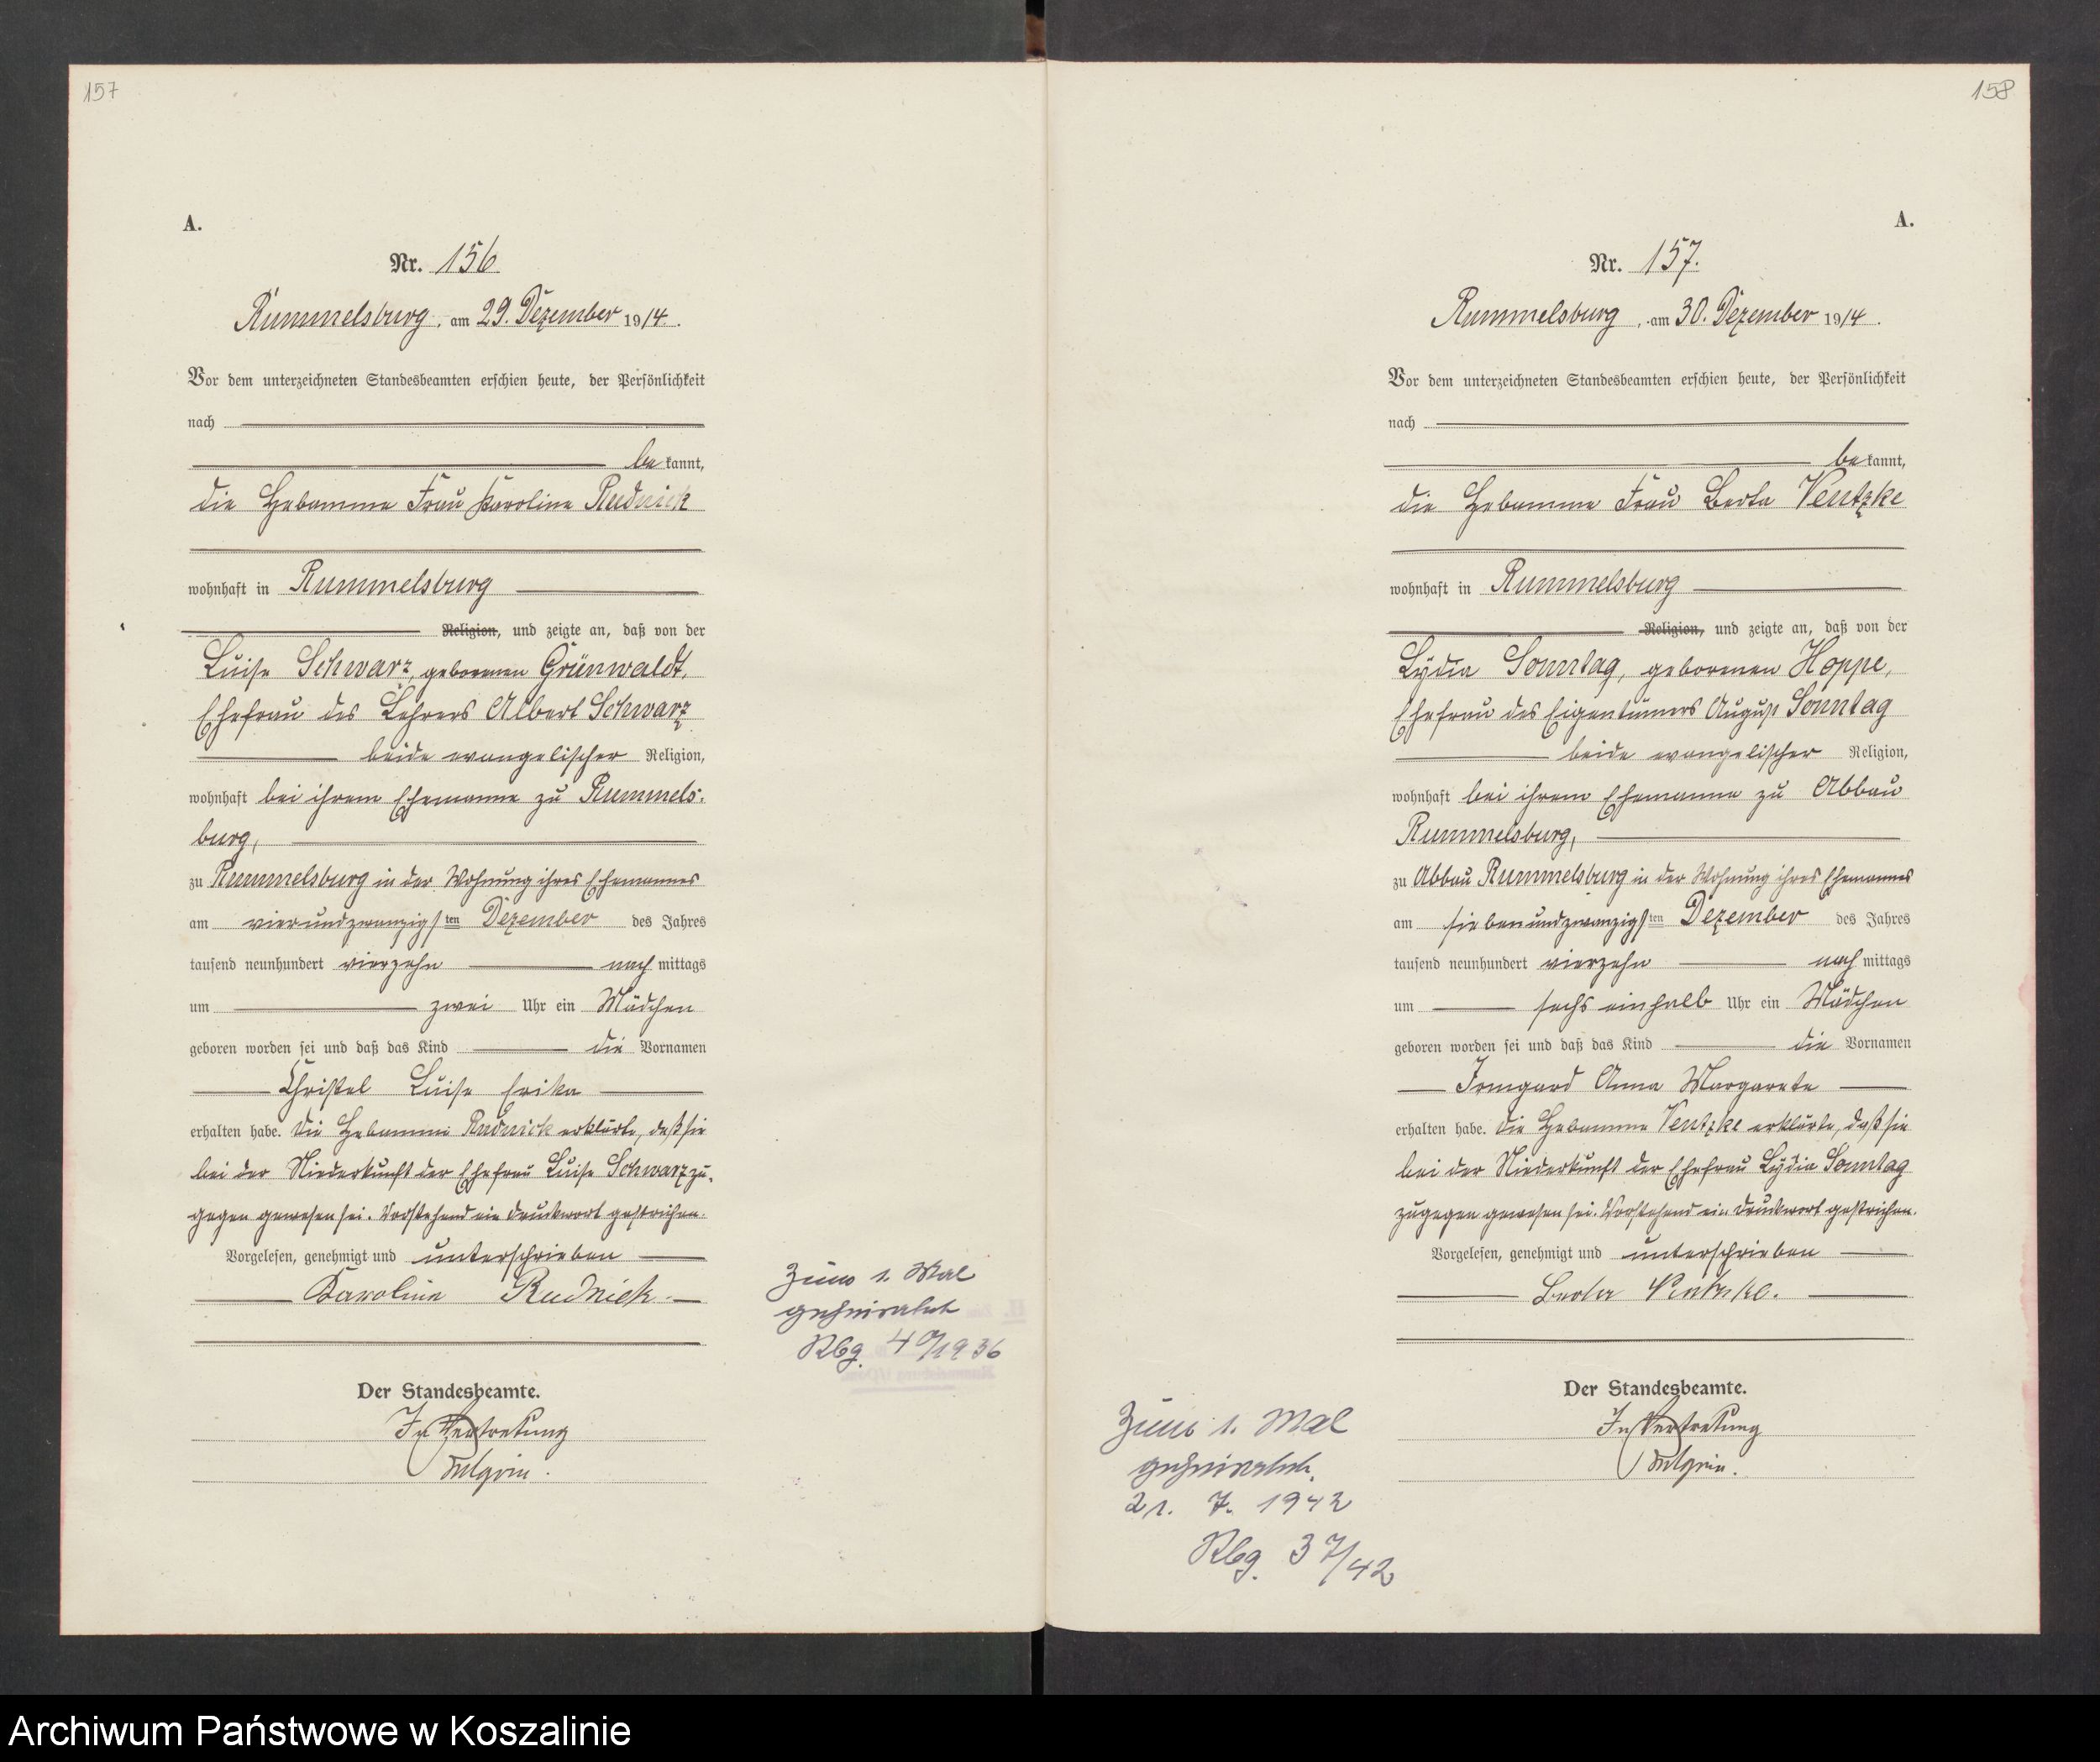 157
A.
Nr. 156
Rummelsburg, am 29. Dezember 1914.
Vor dem unterzeichneten Standesbeamten erschien heute, der Persönlichkeit
nach
be kannt,
die Hebamme Frau Karoline Rudnick
wohnhaft in Rummelsburg
Religion, und zeigte an, daß von der
Luise Schwarz, geborenen Grünwaldt,
Ehefrau des Lehrers Albert Schwarz
beide evangelischer Religion,
wohnhaft bei ihrem Ehemanne zu Rummels-
burg,
zu Rummelsburg in der Wohnung ihres Ehemannes
am vierundzwanzigsten Dezember des Jahres
tausend neunhundert vierzehn nach mittags
um zwei Uhr ein Mädchen
geboren worden sei und daß das Kind die Vornamen
Christel Luise Erika
erhalten habe. Die Hebamme Rudnick erklärte, daß sie
bei der Niederkunft der Ehefrau Luise Schwarz zu-
gegen gewesen sei. Vorstehend ein Druckwort gestrichen.
Vorgelesen, genehmigt und unterschrieben
Karoline Rudnick.
Der Standesbeamte.
In Vertretung
Zum 1. Mal
geheiratet
Rbg. 1936
158
A.
Nr. 157.
Rummelsburg, am 30. Dezember 1914.
Vor dem unterzeichneten Standesbeamten erschien heute, der Persönlichkeit
nach
be kannt,
die Hebamme Frau Berta Ventzke
wohnhaft in Rummelsburg
Religion, und zeigte an, daß von der
Lydia Sonntag, geborenen Hoppe,
Ehefrau des Eigentümers August Sonntag
beide evangelischer Religion,
wohnhaft bei ihrem Ehemanne zu Abbau
Rummelsburg,
zu Abbau Rummelsburg in der Wohnung ihres Ehemannes
am siebenundzwanzigsten Dezember des Jahres
tausend neunhundert vierzehn nach mittags
um sechs einhalb Uhr ein Mädchen
geboren worden sei und daß das Kind die Vornamen
Irmgard Anna Margarete
erhalten habe. Die Hebamme Ventzke erklärte, daß sie
bei der Niederkunft der Ehefrau Lydia Sonntag
zugegen gewesen sei. Vorstehend ein Druckwort gestrichen.
Vorgelesen, genehmigt und unterschrieben
Berta Ventzke.
Der Standesbeamte.
In Vertretung
Zum 1. Mal
geheiratet
21. 7. 1942
Rbg. 37/42
Archiwum Państwowe w Koszalinie